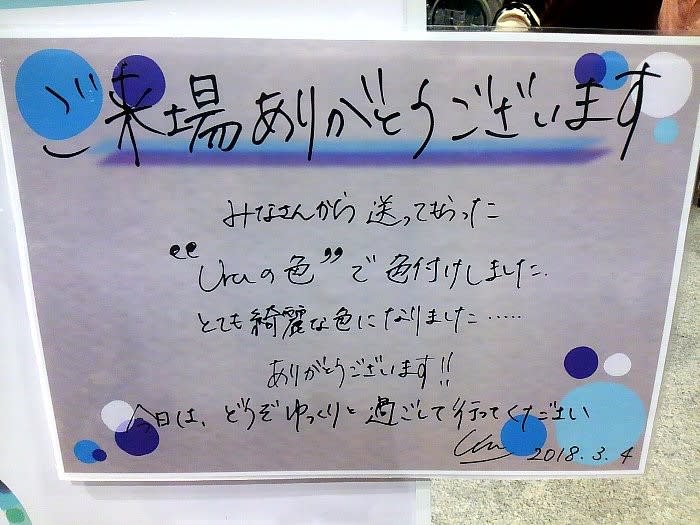 ご来場ありがとうございます
みなさんから送ってもらった
"Uruの色"で色付けしました.
とても綺麗な色になりました.....
ありがとうございます!!
今日は、どうぞゆっくりと過ごして行ってください
Uru 2018.3.4